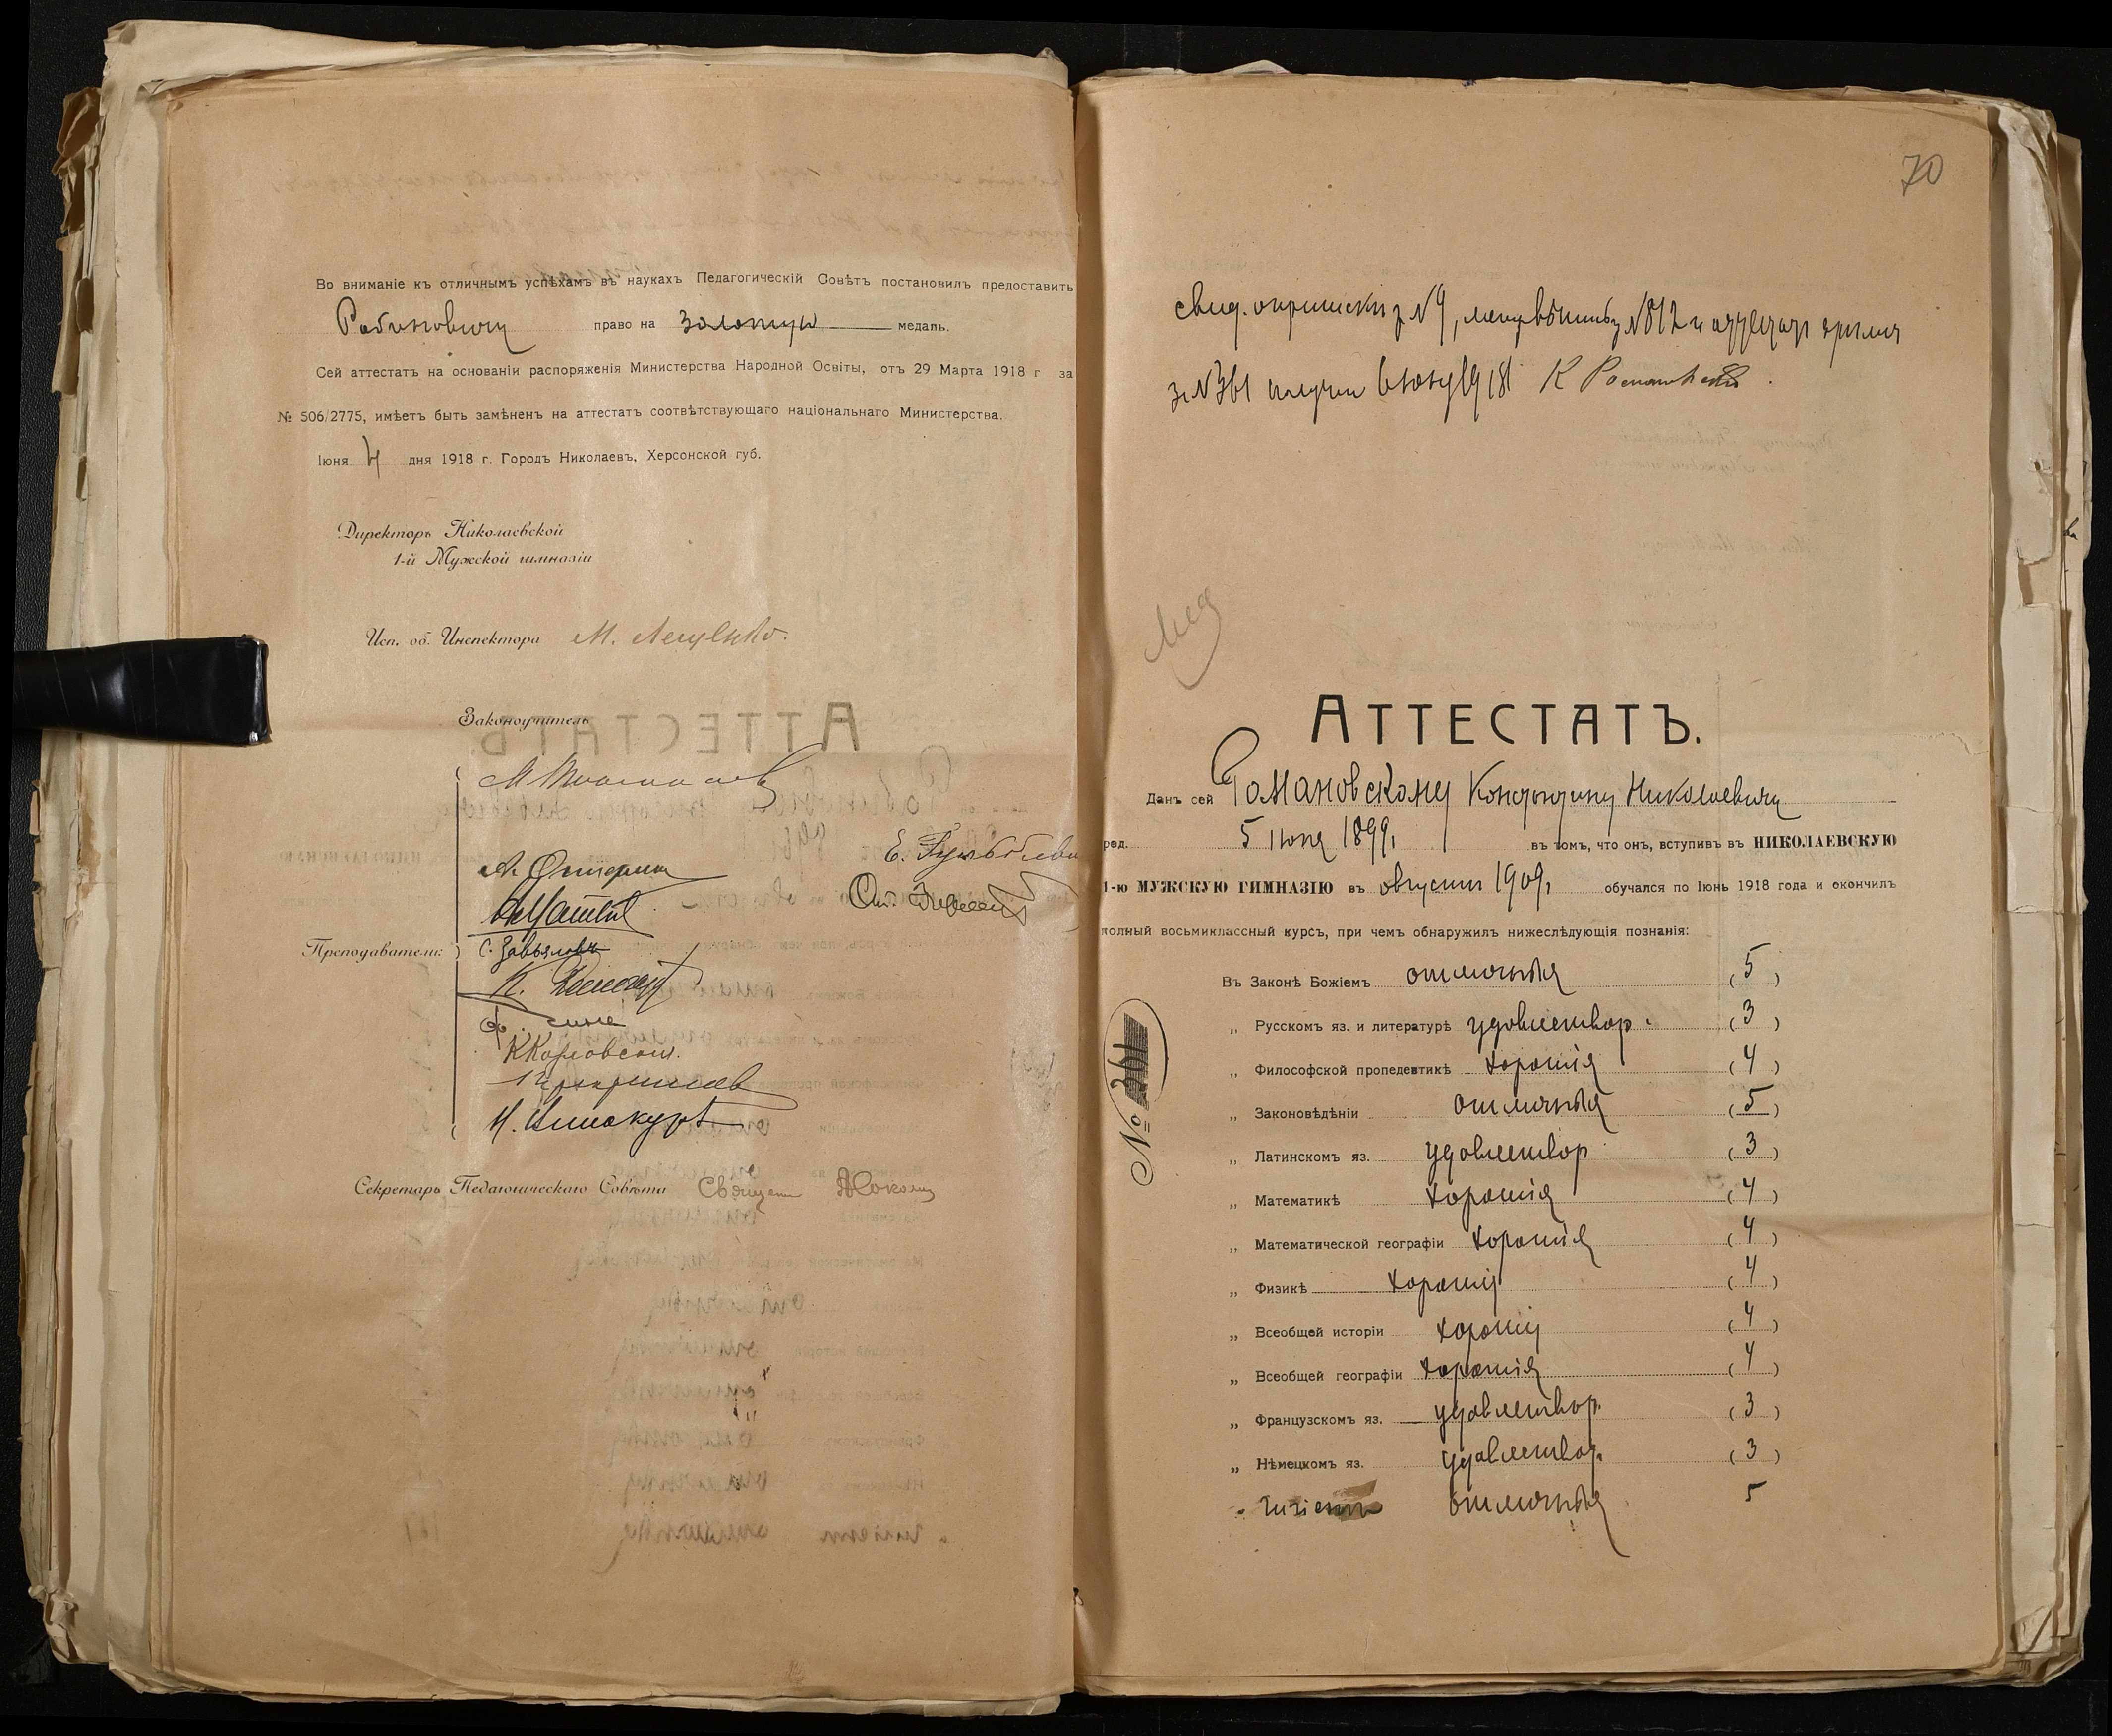 Во вниманіе къ отличнымъ успѣхамъ въ наукахъ Педагогическій Совѣтъ постановилъ предоставить
Рабиновичу право на золотую медаль.
Сей аттестатъ на основаніи распоряженія Министерства Народной Освіты, отъ 29 Марта 1918 г за
№ 506/2775, имѣетъ быть замѣненъ на аттестатъ соотвѣтствующаго національнаго Министерства.
Іюня 4 дня 1918 г. Городъ Николаевъ, Херсонской губ.
Директоръ Николаевской
1-й Мужской гимназіи
Исп. об. Инспектора М. Лещенко.
Законоучитель
Преподаватели:
С. Завьяловъ
Секретарь Педагогическаго Совѣта Священ
70
свид. о приписки за № 9, метр №812 и аттестат зрѣлости
за №361 получил 6 іюня 1918 К Романовский.
Мед
АТТЕСТАТЪ.
Данъ сей Романовскому Константину Николаевичу
род. 5 іюня 1899, въ томъ, что онъ, вступивъ въ НИКОЛАЕВСКУЮ
1-ю МУЖСКУЮ ГИМНАЗІЮ въ августѣ 1909, обучался по Іюнь 1918 года и окончилъ
полный восьмиклассный курсъ, при чемъ обнаружилъ нижеслѣдующія познанія:
№ 361
Въ Законѣ Божіемъ отличныя (5)
„ Русскомъ яз. и литературѣ удовлетвор. (3)
„ Философской пропедевтикѣ хорошія (4)
„ Законовѣдѣніи отличныя (5)
„ Латинскомъ яз. удовлетвор (3)
„ Математикѣ хорошія (4)
„ Математической географіи хорошія (4)
„ Физикѣ хорошія (4)
„ Всеобщей исторіи хорошія (4)
„ Всеобщей географіи хорошія (4)
„ Французскомъ яз. удовлетвор. (3)
„ Нѣмецкомъ яз. удовлетвор. (3)
„ Гигіенѣ отличныя 5